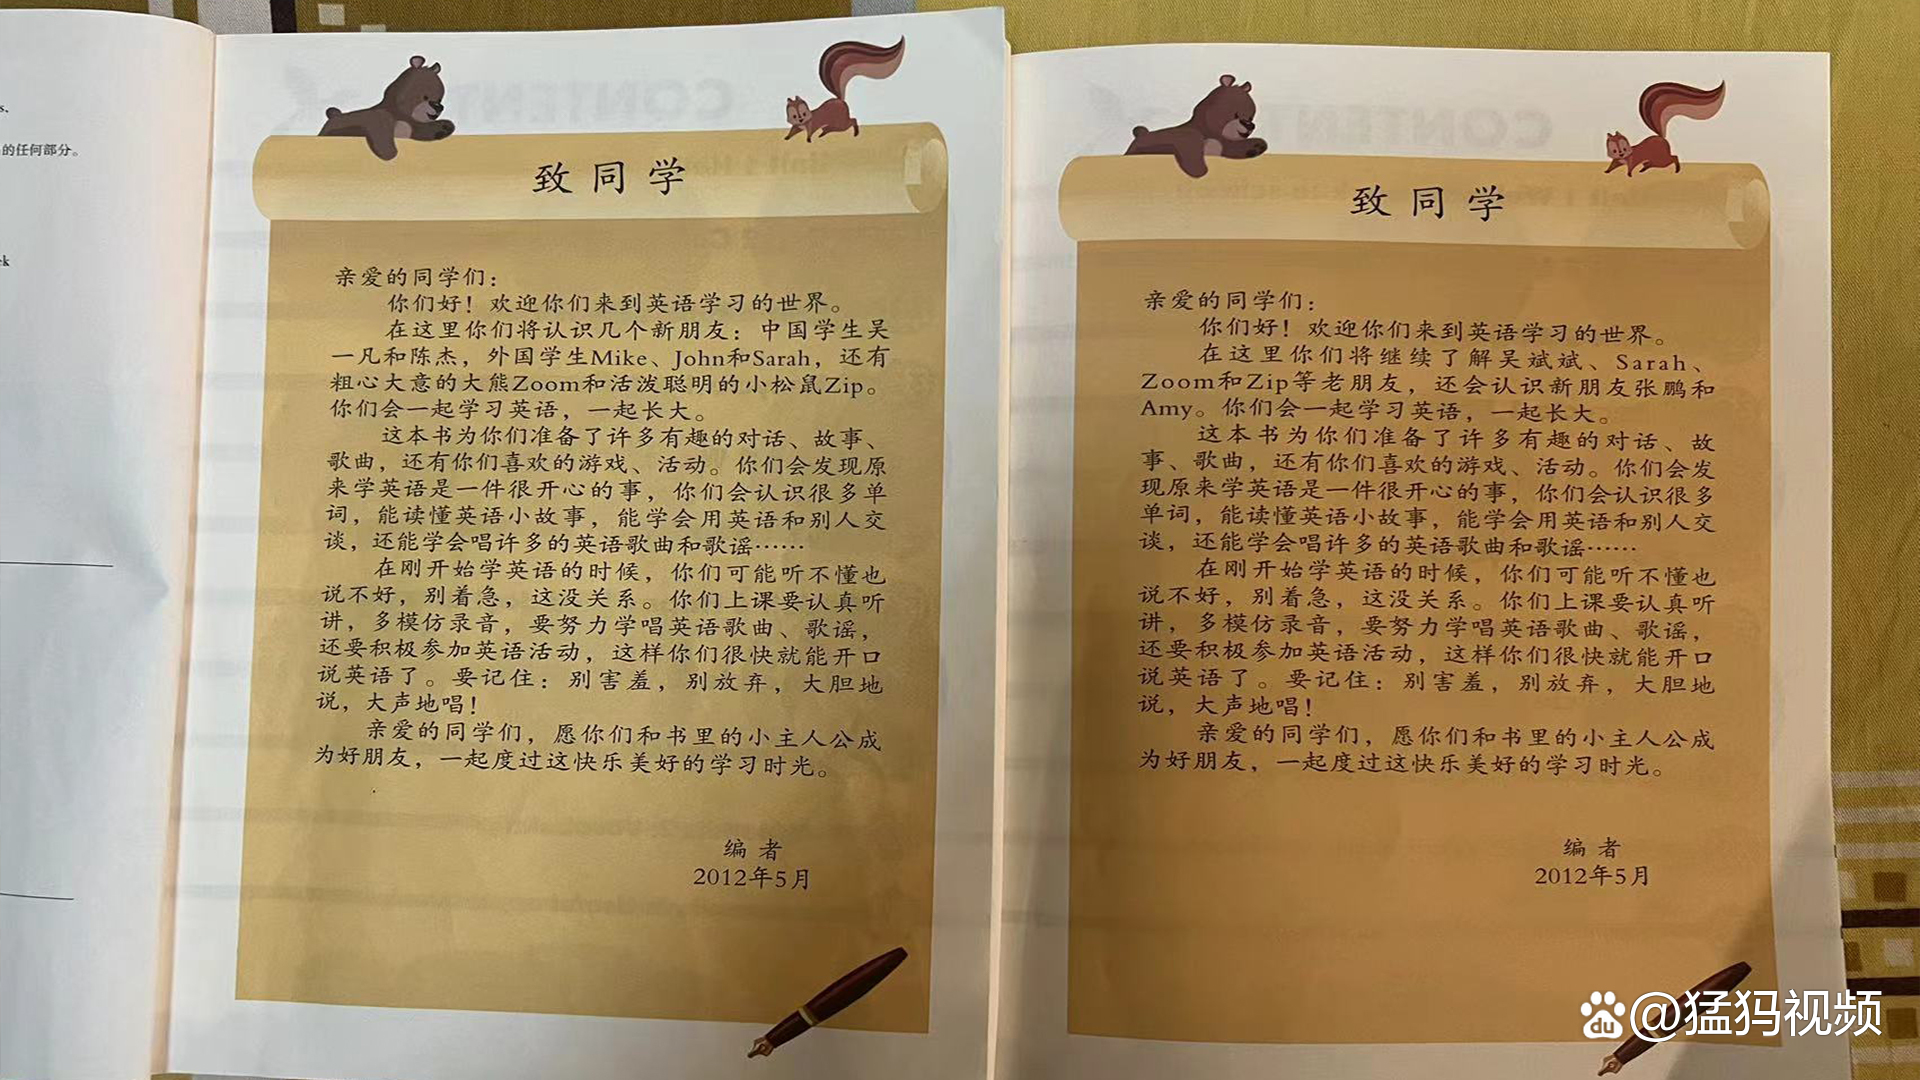 s.
的任何部分。
ek
致同学
亲爱的同学们：
你们好！欢迎你们来到英语学习的世界。
在这里你们将认识几个新朋友：中国学生吴
一凡和陈杰，外国学生Mike、John和Sarah，还有
粗心大意的大熊Zoom和活泼聪明的小松鼠Zip。
你们会一起学习英语，一起长大。
这本书为你们准备了许多有趣的对话、故事、
歌曲，还有你们喜欢的游戏、活动。你们会发现原
来学英语是一件很开心的事，你们会认识很多单
词，能读懂英语小故事，能学会用英语和别人交
谈，还能学会唱许多的英语歌曲和歌谣……
在刚开始学英语的时候，你们可能听不懂也
说不好，别着急，这没关系。你们上课要认真听
讲，多模仿录音，要努力学唱英语歌曲、歌谣，
还要积极参加英语活动，这样你们很快就能开口
说英语了。要记住：别害羞，别放弃，大胆地
说，大声地唱！
亲爱的同学们，愿你们和书里的小主人公成
为好朋友，一起度过这快乐美好的学习时光。
编者
2012年5月
致同学
亲爱的同学们：
你们好！欢迎你们来到英语学习的世界。
在这里你们将继续了解吴斌斌、Sarah、
Zoom和Zip等老朋友，还会认识新朋友张鹏和
Amy。你们会一起学习英语，一起长大。
这本书为你们准备了许多有趣的对话、故
事、歌曲，还有你们喜欢的游戏、活动。你们会发
现原来学英语是一件很开心的事，你们会认识很多
单词，能读懂英语小故事，能学会用英语和别人交
谈，还能学会唱许多的英语歌曲和歌谣……
在刚开始学英语的时候，你们可能听不懂也
说不好，别着急，这没关系。你们上课要认真听
讲，多模仿录音，要努力学唱英语歌曲、歌谣，
还要积极参加英语活动，这样你们很快就能开口
说英语了。要记住：别害羞，别放弃，大胆地
说，大声地唱！
亲爱的同学们，愿你们和书里的小主人公成
为好朋友，一起度过这快乐美好的学习时光。
编者
2012年5月
du @猛犸视频